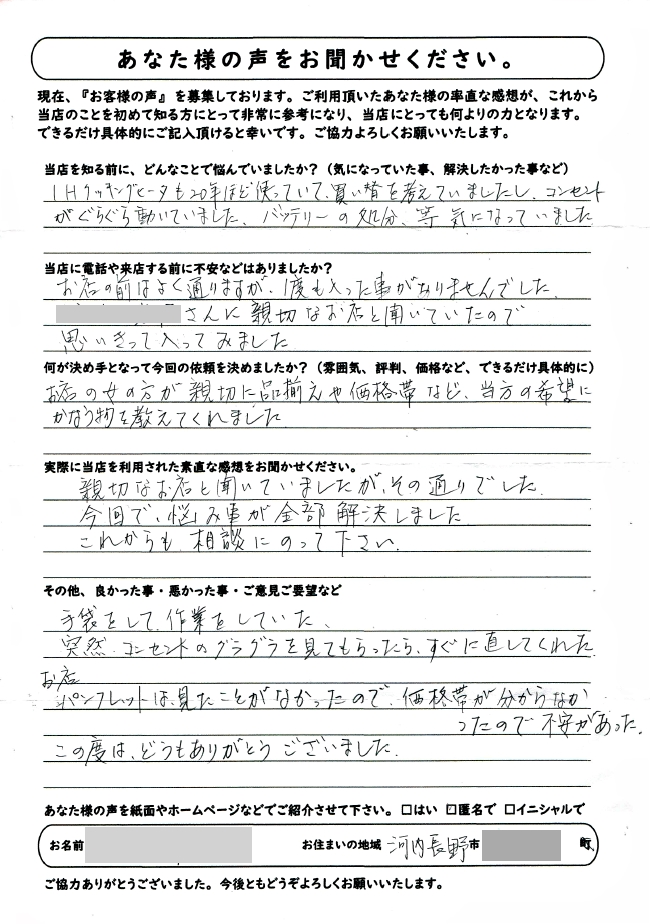 あなた様の声をお聞かせください。
現在、『お客様の声』を募集しております。ご利用頂いたあなた様の率直な感想が、これから
当店のことを初めて知る方にとって非常に参考になり、当店にとっても何よりの力となります。
できるだけ具体的にご記入頂けると幸いです。ご協力よろしくお願いいたします。
当店を知る前に、どんなことで悩んでいましたか？（気になっていた事、解決したかった事など）
IHクッキングヒータも20年ほど使っていて、買い替を考えていましたし、コンセント
がぐらぐら動いていました、バッテリーの処分、等気になっていました
当店に電話や来店する前に不安などはありましたか？
お店の前はよく通りますが、1度も入った事がありませんでした
さんに親切なお店と聞いていたので
思いきって入ってみました
何が決め手となって今回の依頼を決めましたか？（雰囲気、評判、価格など、できるだけ具体的に）
お店の女の方が親切に品揃えや価格帯など、当方の希望に
かなう物を教えてくれました
実際に当店を利用された素直な感想をお聞かせください。
親切なお店と聞いていましたが、その通りでした
今回で、悩み事が全部解決しました
これからも相談にのって下さい。
その他、良かった事・悪かった事・ご意見ご要望など
手袋をして、作業をしていた、
突然コンセントのグラグラを見てもらったら、すぐに直してくれた
お店
パンフレットは、見たことがなかったので、価格帯が分からなか
ったので不安があった。
この度は、どうもありがとうございました。
あなた様の声を紙面やホームページなどでご紹介させて下さい。□はい ☑匿名で □イニシャルで
お名前 お住まいの地域 河内長野市 町
ご協力ありがとうございました。今後ともどうぞよろしくお願いいたします。